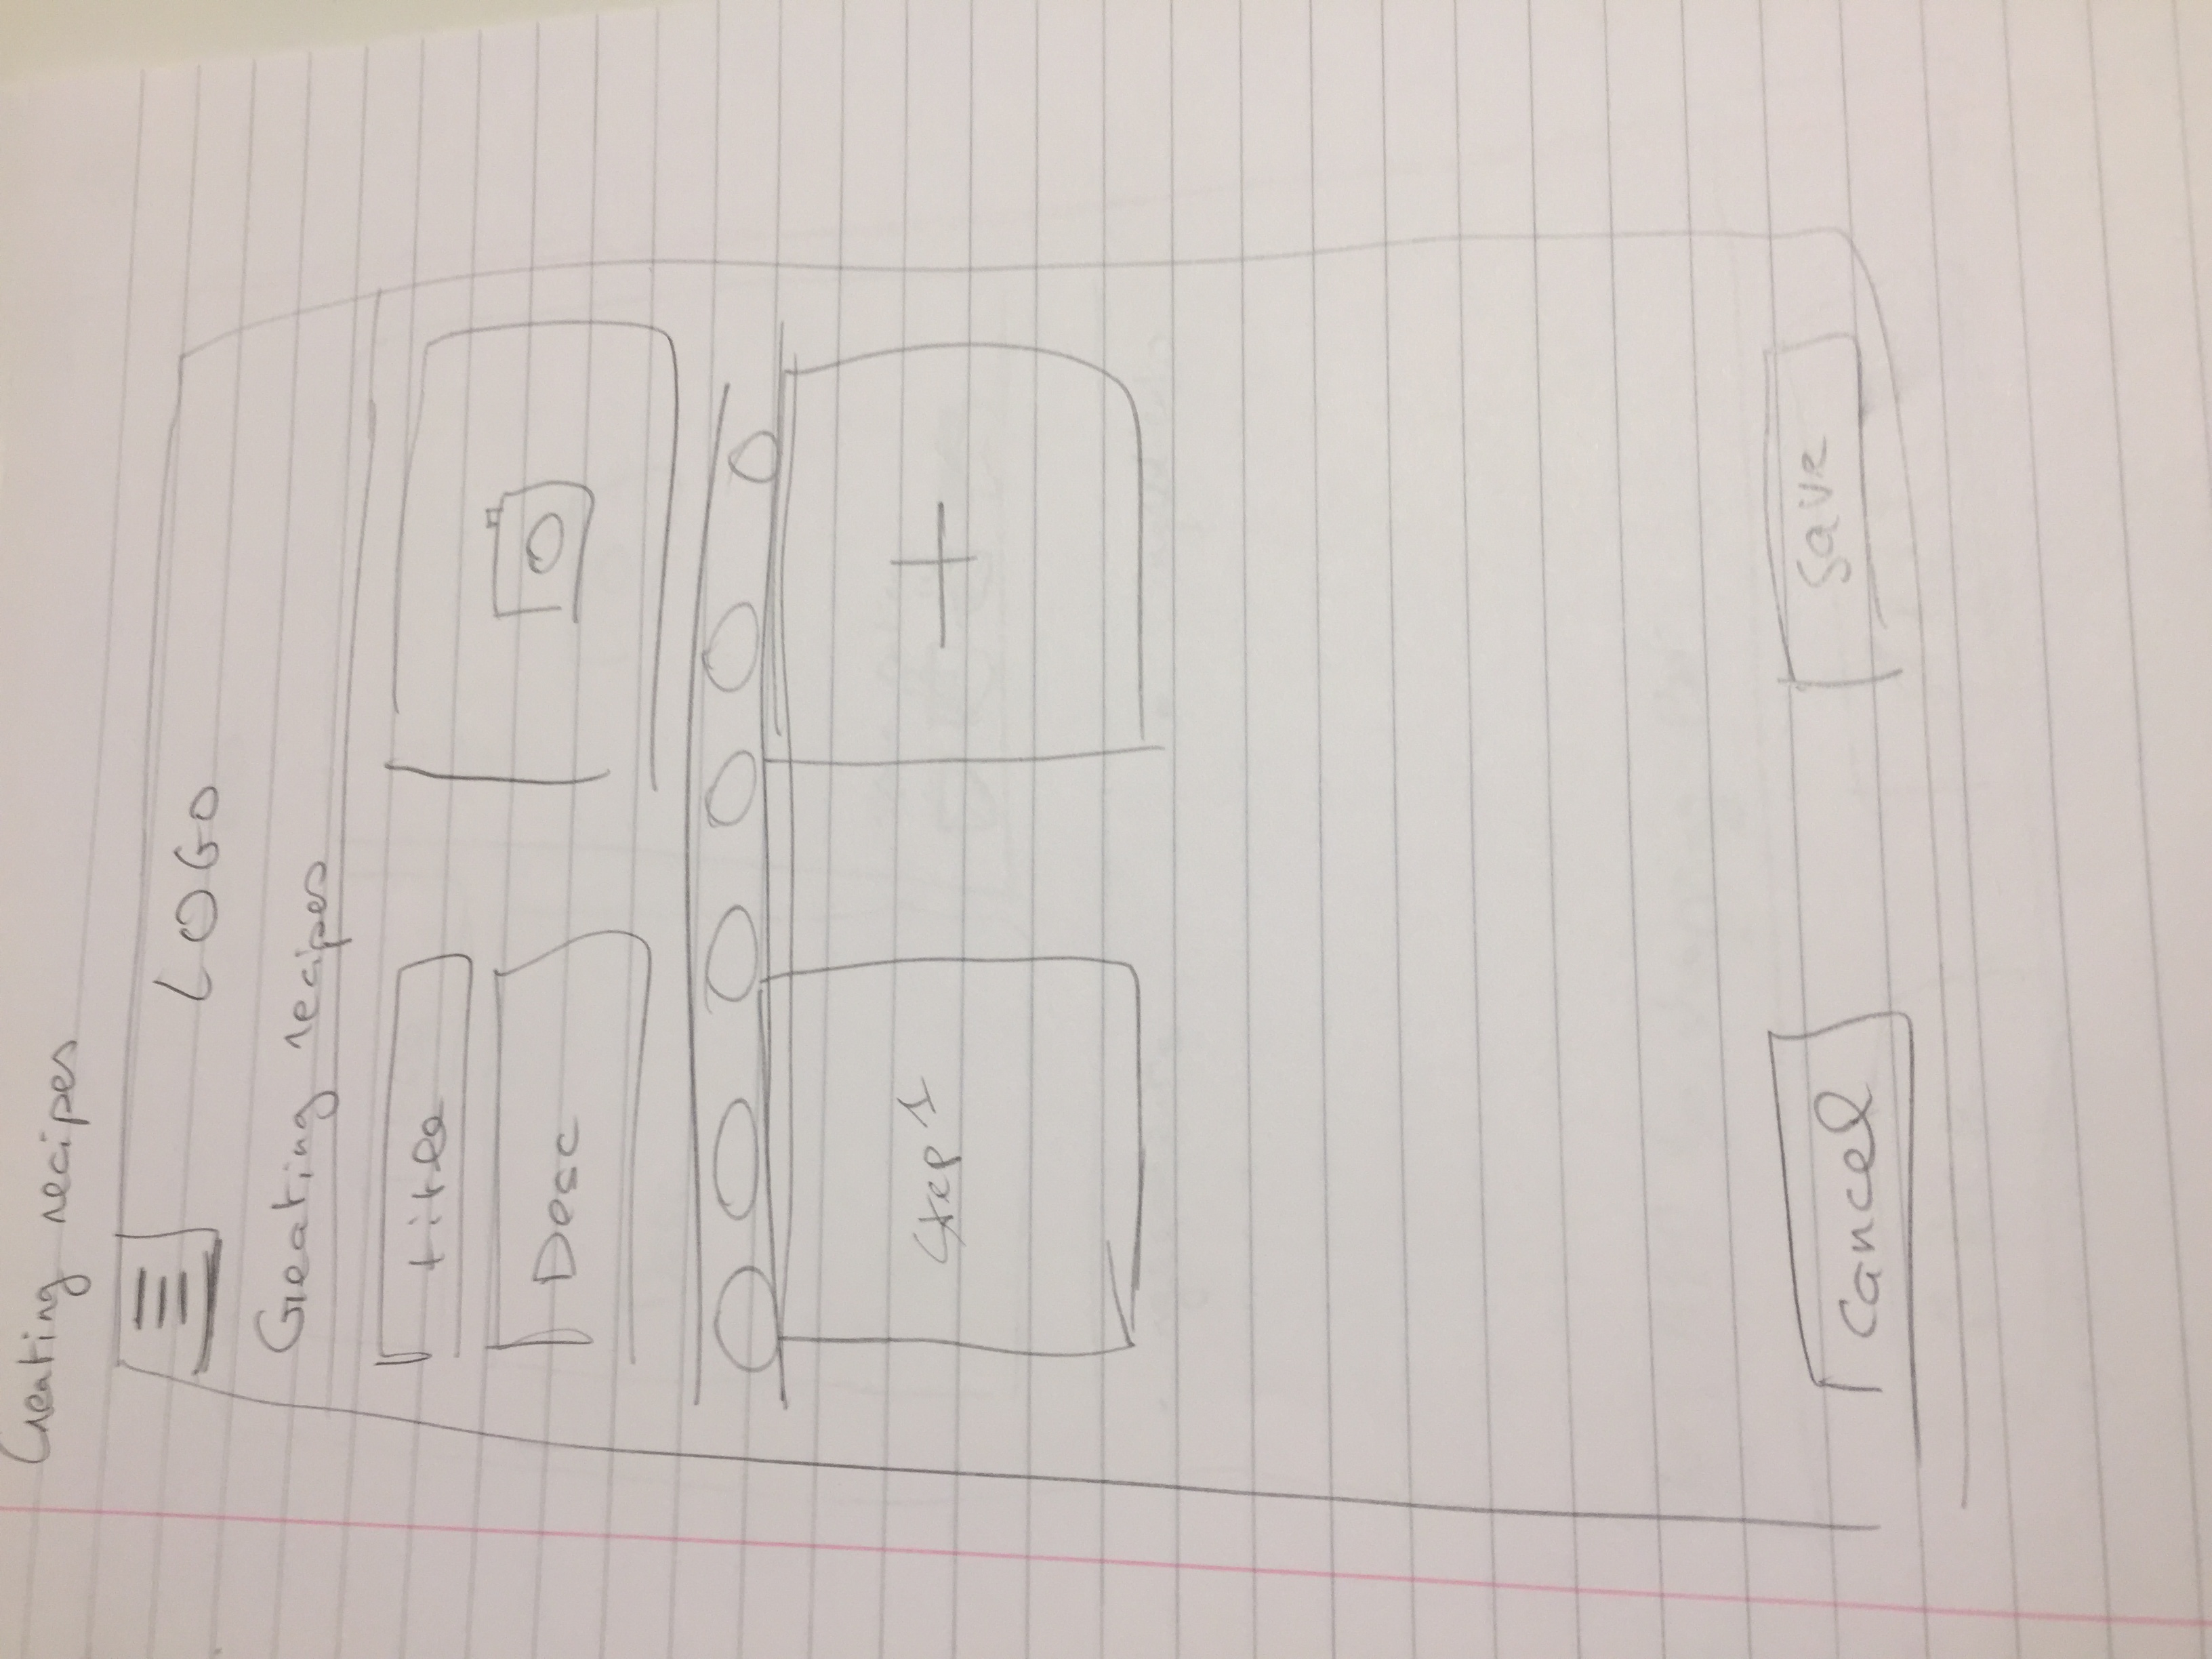 Creating recipes
LOGO
Creating recipes
title
Desc
Step 1
Cancel
Save